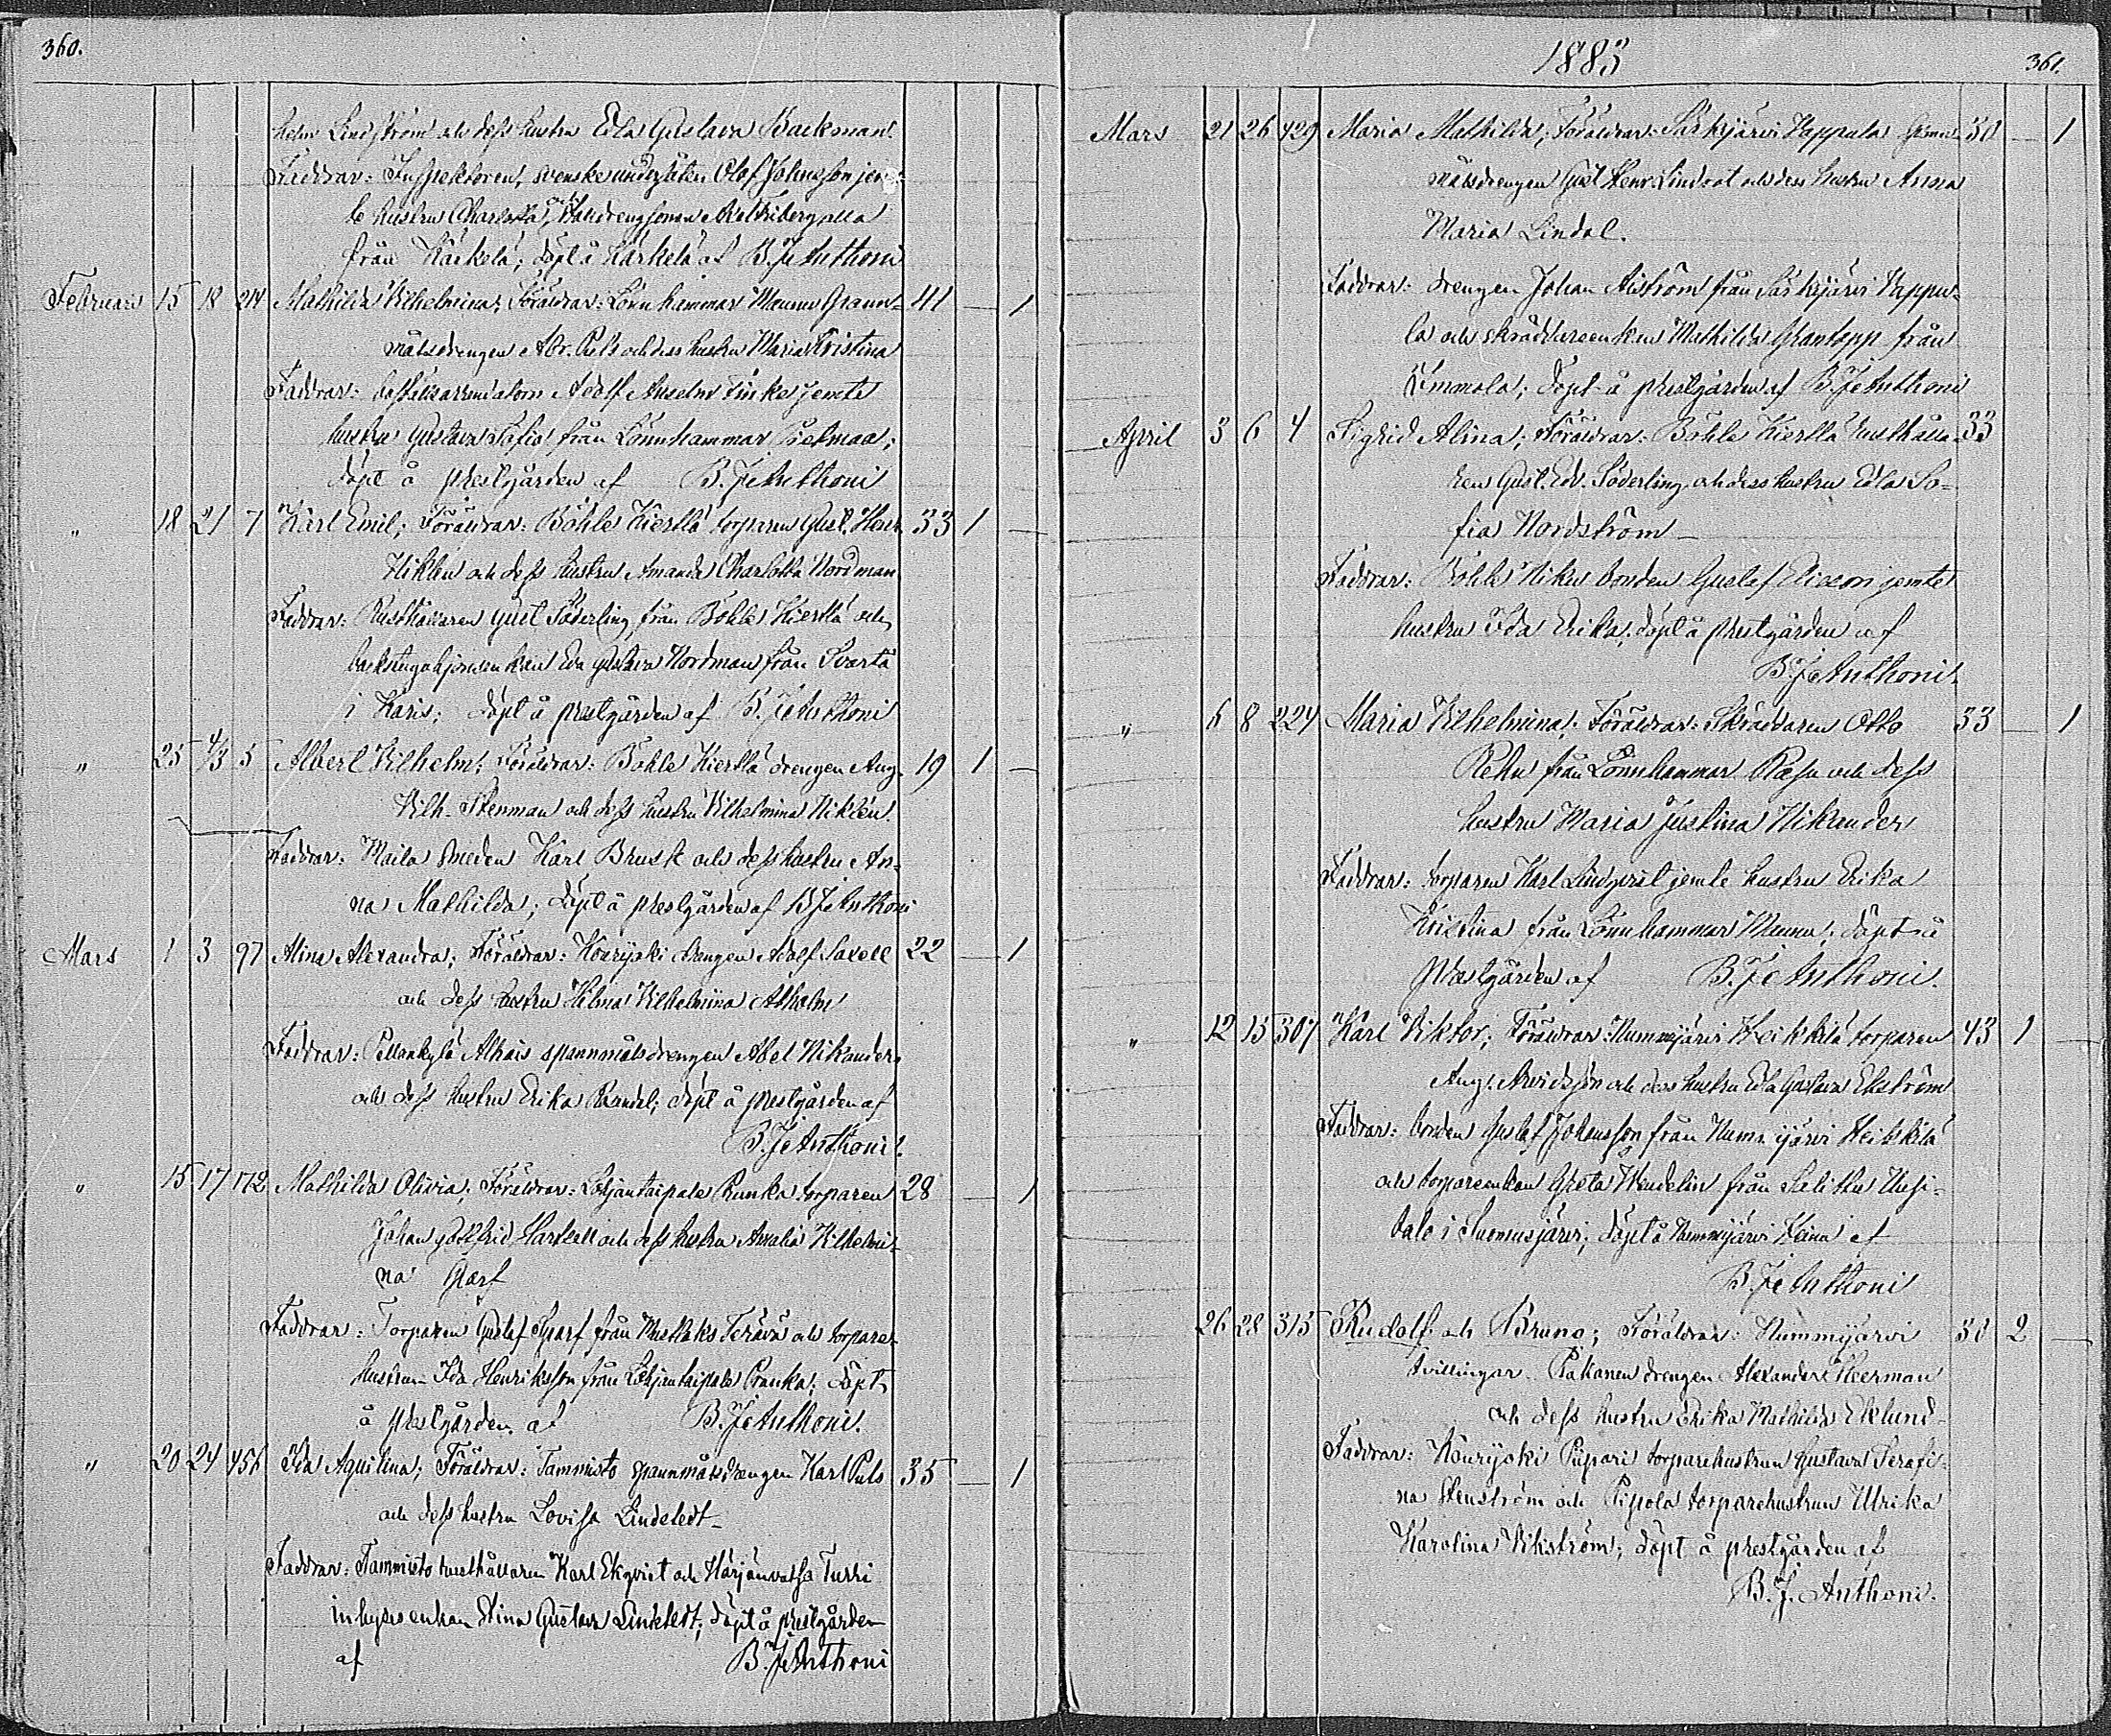 360.
helm Lindström och dess hustru Edla Gustava Backman.
Faddrar: Inspektoren, svenske undersåten Olof Johnsson jem-
te hustru Charlotta,
från Kärkelä; döpt å Kärkelä af B. J. Anthoni
Februari 15 18 214 Mathilda Vilhelmina; Föräldrar: Lönnhammar Maunu spann- 41 — 1
målsdrengen Abr. Puls och dess hustru Maria Kristina
Faddrar: Adolf Anselm Finke jemte
hustru Gustava Sofia från Lönnhammar
döpt å prestgården af B. J. Anthoni
" 18 21 7 Karl Emil; Föräldrar: Böhle Kierklä torparen Gust. Henr. 33 1 —
Niklén och dess hustru Amanda Charlotta Nordman
Faddrar: Rusthållaren Gust Söderling från Böhle Kierklä och
Eva Gustava Nordman från Svartå
i Karis; döpt å prestgården af B. J. Anthoni
" 25 4/3 5 Albert Vilhelm; Föräldrar: Böhle Kierklä drengen Aug. 19 1 —
Vilh. Stenman och dess hustru Vilhelmina Niklén.
Faddrar: Maila smeden Karl Brusk och dess hustru An-
na Mathilda; döpt å prestgården af B. J. Anthoni
Mars 1 3 97 Alina Alexandra; Föräldrar: Kouvjoki drengen Adolf Saxell 22 — 1
och dess hustru Hilma Vilhelmina Alholm
Faddrar: Pellonkylä Alhais spannmålsdrengen Abel Nikander
och dess hustru Erika Randel; döpt å prestgården af
B. J. Anthoni.
" 15 17 172 Mathilda Olivia; Föräldrar: Lohjantaipale Ranka torparen 28 — 1
Johan Gottfrid Hartvall och dess hustru Amalia Vilhelmi-
na Sparf
Faddrar: Torparen Gustaf Sparf från Muslaks Terävä och torpare-
hustrun Ida Henriksson från Lohjantaipale Ranka; döpt
å prestgården af B. J. Anthoni.
" 20 24 456 Ida Aquilina; Föräldrar: Tammisto spannmålsdrengen Karl Puls 35 — 1
och dess hustru Lovisa Lindstedt
Faddrar: Tammisto rusthållaren Karl Ekqvist och Härjänvatsa Turri
inhyses enkan Stina Gustava Lindstedt; döpt å prestgården
af B. J. Anthoni
1883
361.
Mars 21 26 429 Maria Mathilda; Föräldrar: Särkjärvi Kappula spann- 30 — 1
målsdrengen Gust Henr. Lindroot och dess hustru Anna
Maria Lindal.
Faddrar: drengen Johan Åström från Särkjärvi Kappu-
la och skräddareenkan Mathilda Grantapp från
Immola; döpt å prestgården af B. J. Anthoni
April 3 6 4 Sigrid Alina; Föräldrar: Böhle Kierklä rusthålla- 33
ren Gust. Edv. Söderling och dess hustru Edla So-
fia Nordström —
Faddrar: Böhle Nikus bonden Gustaf Ericson jemte
hustru Ida Erika; döpt å prestgården af
B. J. Anthoni.
" 6 8 224 Maria Vilhelmina; Föräldrar: Skräddaren Otto 33 — 1
Rehn från Lönnhammar Rasu och dess
hustru Maria Justina Nikander
Faddrar: torparen Karl Lindqvist jemte hustru Erika
Kristina från Lönnhammar Mauna; döpt å
Prestgården af B. J. Anthoni.
" 12 15 307 Karl Viktor; Föräldrar: Nummijärvi Heikkilä torparen 43 1 —
Aug. Arvidsson och dess hustru Edla Gustava Ekström
Faddrar: bonden Gustaf Johansson från Nummijärvi Heikkilä
och torpareenkan Greta Wendelin från Salittu Uusi-
talo i Suomusjärvi; döpt å Nummijärvi Heina af
B. J. Anthoni
26 28 315 Rudolf och Bruno; Föräldrar: Nummijärvi 30 2 —
tvillingar. Pakanen drengen Alexander Heerman
och dess hustru Erika Mathilda Eklund
Faddrar: Kouvjoki Piipari torparehustrun Gustava Serafi-
na Stenström och Pipola torparehustrun Ulrika
Karolina Vikström; döpt å prestgården af
B. J. Anthoni.